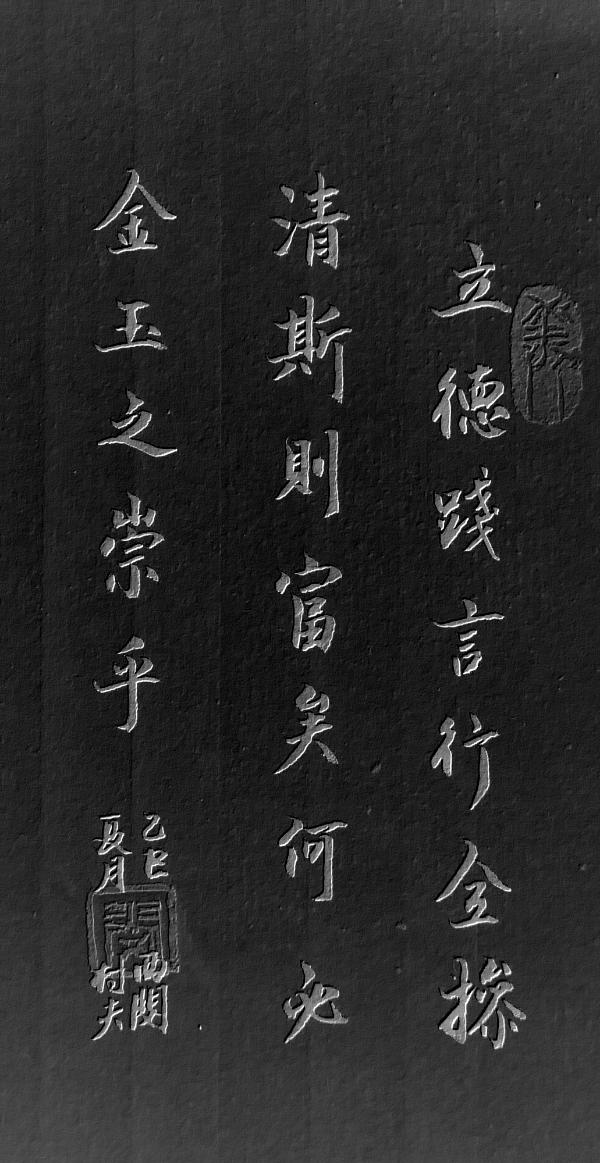 立德踐言行全操
清斯則富矣何必
金玉之崇乎
乙巳
夏月
西関
村夫